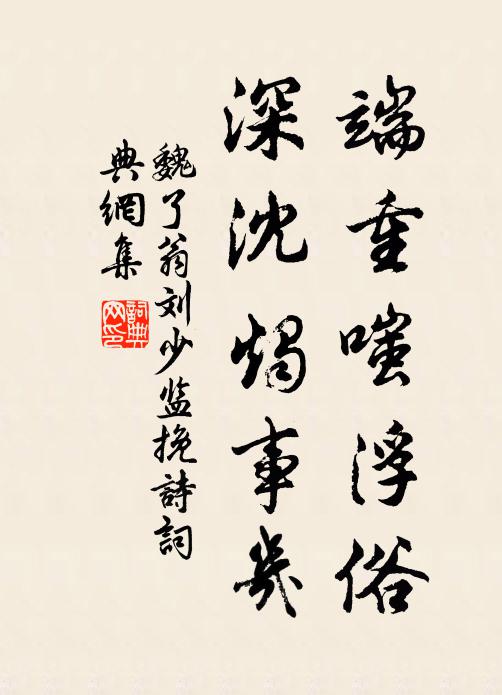 端重嗤浮俗
深沈烛事幾
魏了翁刘少监挽詩詞
典網集
詞典
网印